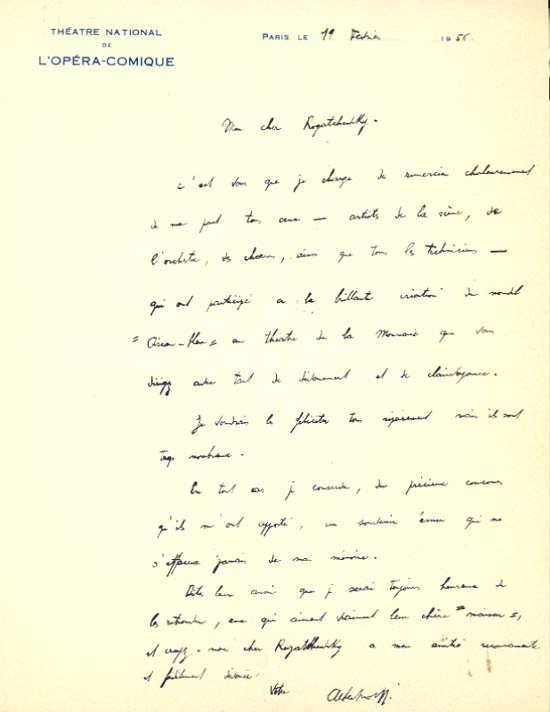 THÉATRE NATIONAL
DE
L'OPÉRA-COMIQUE
PARIS, LE 19 Février 1956
Mon cher Rogatchewsky.
c'est vous que je charge de remercier chaleureusement
de ma part tous ceux — artistes de la scène, de
l'orchestre, des chœurs, ainsi que tous les techniciens —
qui ont participé a la brillante création du
"au théâtre de la Monnaie que vous
dirigez avec tant de dévouement et de clairvoyance.
Je voudrais les féliciter tous séparément mais ils sont
trop nombreux.
En tout cas je conserverai, du précieux concours
qu'ils m'ont apporté, un souvenir ému qui ne
s'effacera jamais de ma mémoire.
Dites leur aussi que je serai toujours heureux de
les retrouver, eux qui aiment vraiment leur chère "maison",
et croyez. mon cher Rogatchewsky a mon amitié reconnaissante
et fidèlement dévouée.
Votre